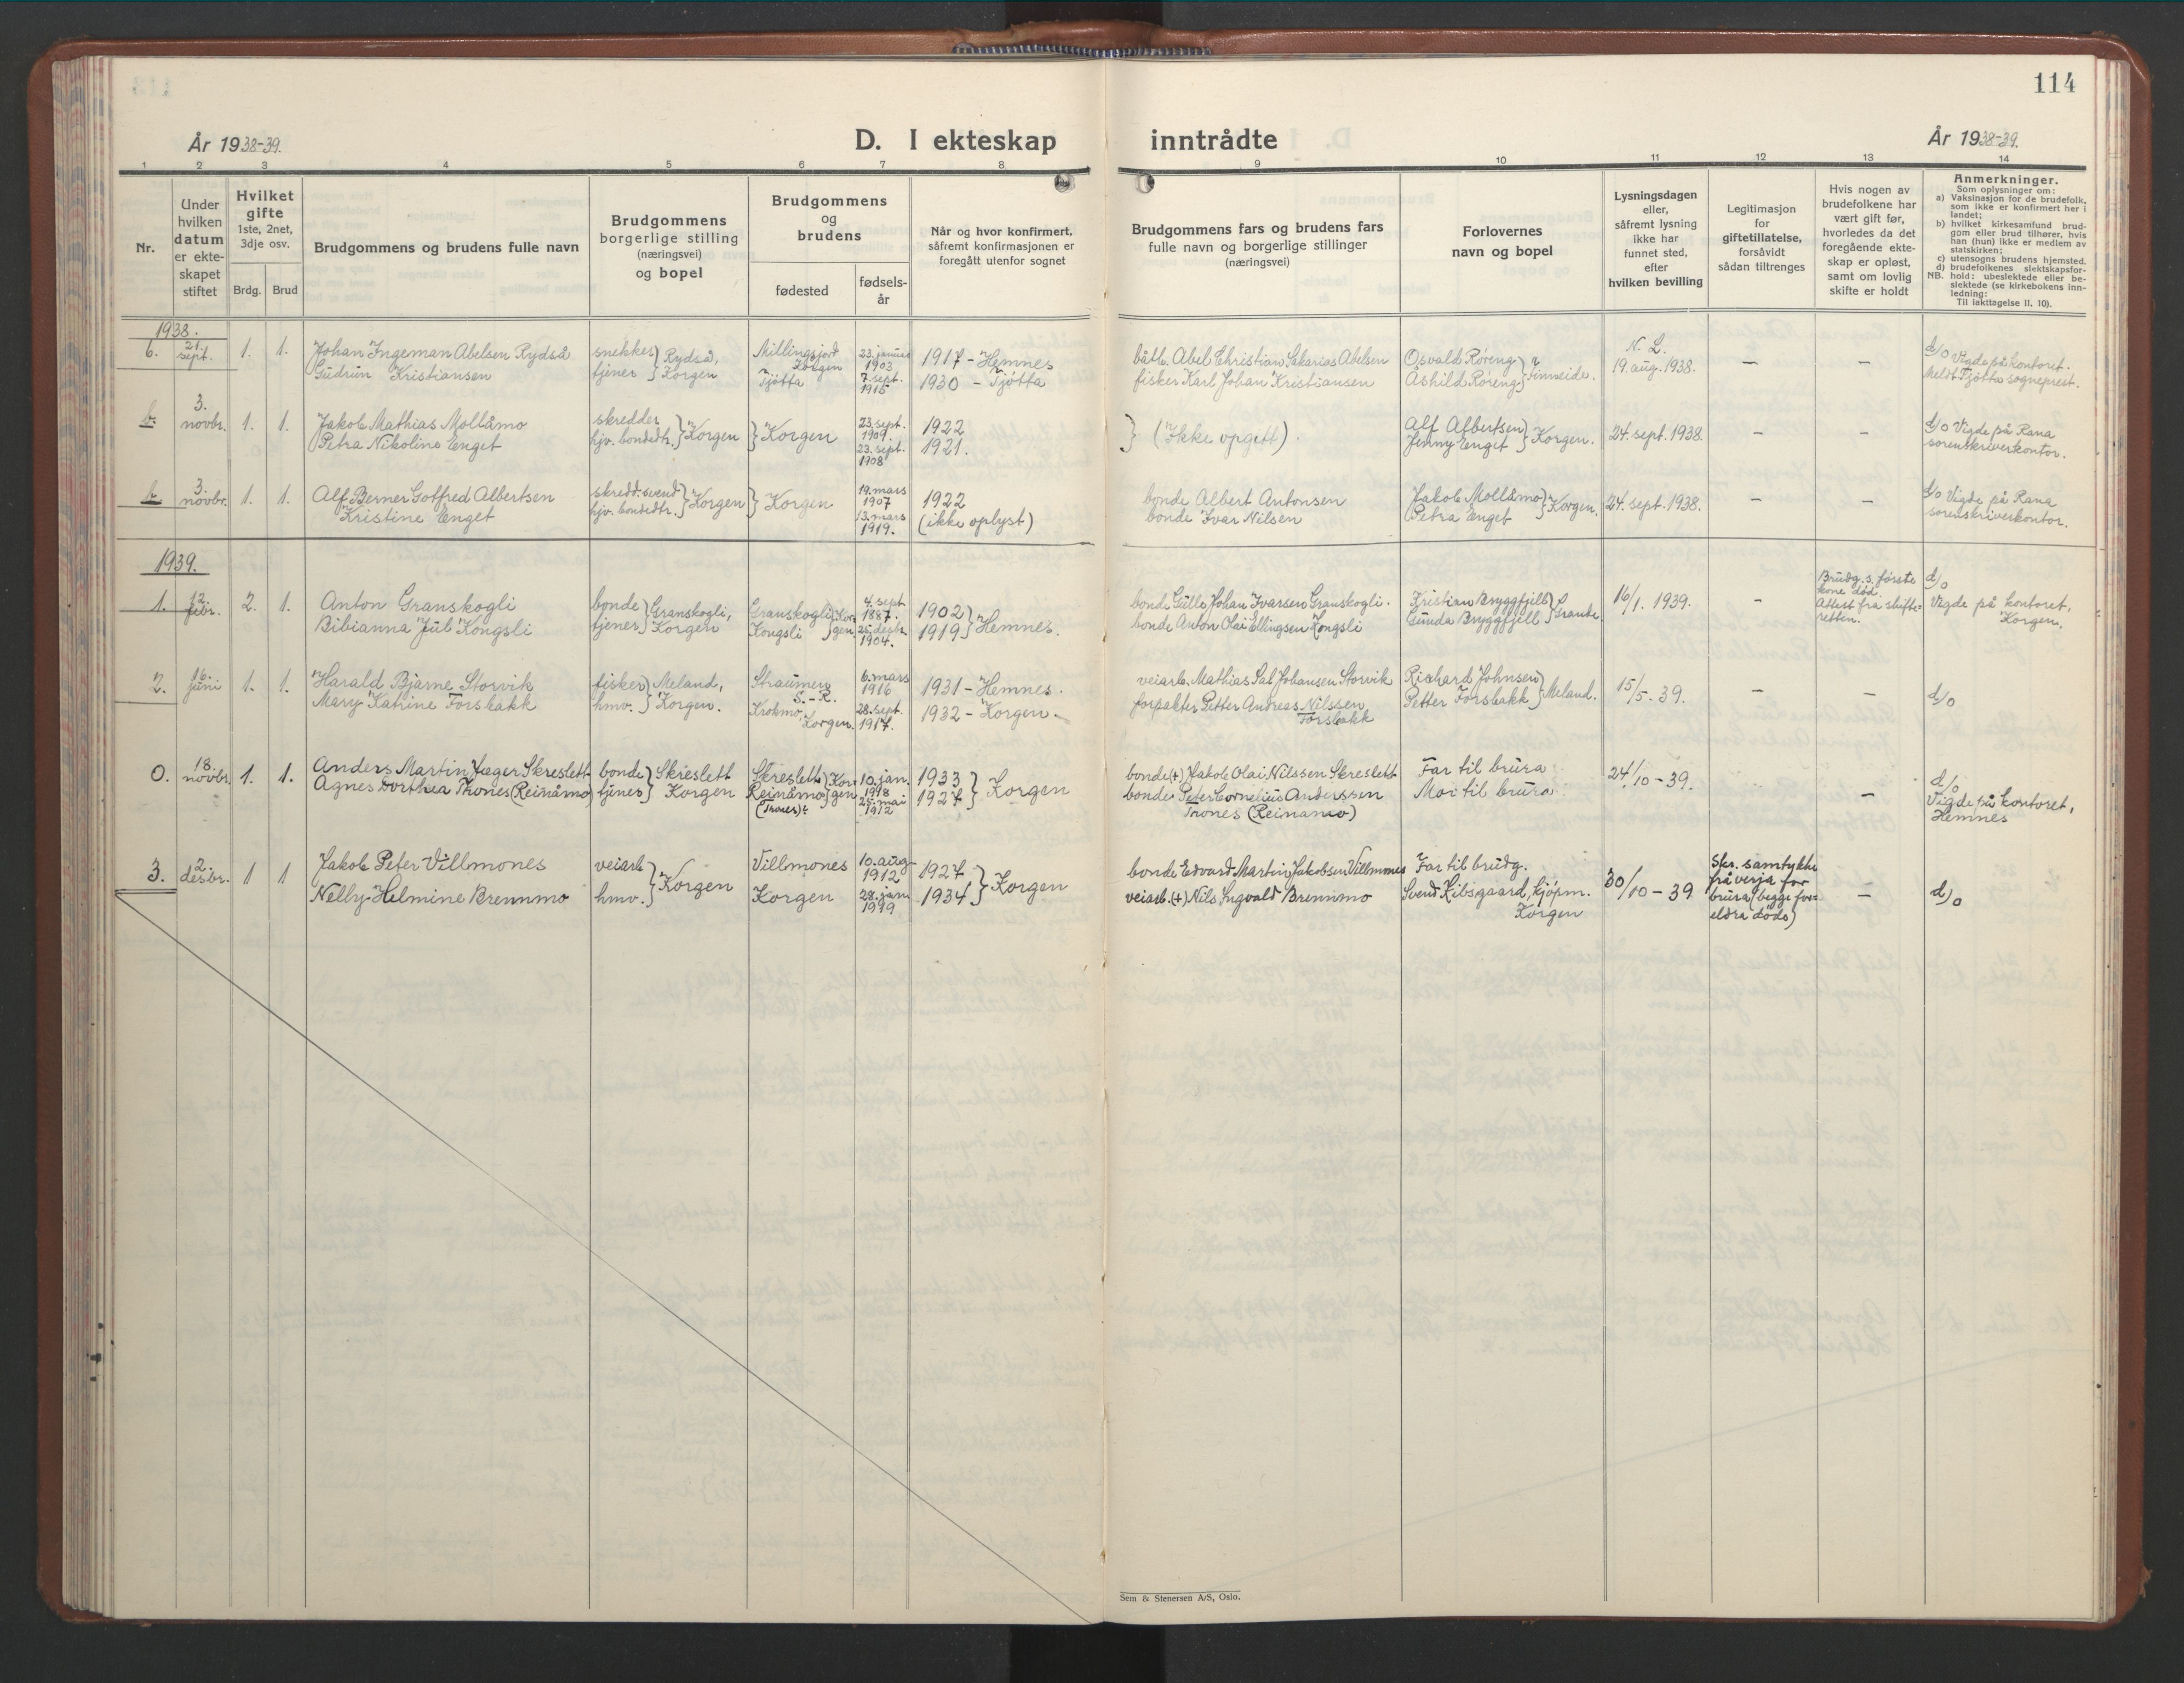 114
År 1938-39.
D. I ekteskap inntrådte
År 1938-39.
1 2 3 4 5 6 7 8 9 10 11 12 13 14
Nr.
Under
hvilken
datum
er ekte-
skapet
stiftet
Hvilket
gifte
1ste, 2net,
3dje osv.
Brdg. Brud
Brudgommens og brudens fulle navn
Brudgommens
borgerlige stilling
(næringsvei)
og bopel
Brudgommens
og
brudens
fødested
fødsels-
år
Når og hvor konfirmert,
såfremt konfirmasjonen er
foregått utenfor sognet
Brudgommens fars og brudens fars
fulle navn og borgerlige stillinger
(næringsvei)
Forlovernes
navn og bopel
Lysningsdagen
eller,
såfremt lysning
ikke har
funnet sted,
efter
hvilken bevilling
Legitimasjon
for
giftetillatelse,
forsåvidt
sådan tiltrenges
Hvis nogen av
brudefolkene har
vært gift før,
hvorledes da det
foregående ekte-
skap er opløst,
samt om lovlig
skifte er holdt
Anmerkninger.
Som oplysninger om:
a) Vaksinasjon for de brudefolk,
som ikke er konfirmert her i
landet;
b) hvilket kirkesamfund brud-
gom eller brud tilhører, hvis
han (hun) ikke er medlem av
statskirken;
c) utensogns brudens hjemsted.
d) brudefolkenes slektskapsfor-
NB. hold: ubeslektede eller be-
slektede (se kirkebokens inn-
ledning:
Til iakttagelse II, 10).
1938.
6. 21. sept. 1. 1.
Johan Ingeman Abelsen Rydså
Gudrun Kristiansen
snekker
tjener } Rydså,
Korgen
Millingsjord
Korgen
Tjøtta
23. januar
1903
7. sept.
1915
1917 - Hemnes
1930 - Tjøtta
båtb. Abel Christian Sakarias Abelsen
fisker Karl Johan Kristiansen
Osvald Røreng
Åshild Røreng } Finneide.
N. L.
19. aug. 1938.
— —
d/o Vigde på kontoret.
Meldt Tjøtta sogneprest.
b. 3. novbr. 1. 1.
Jakob Mathias Mollåmo
Petra Nikoline Enget
skredder
hjv. bondedtr. } Korgen
} Korgen
23. sept.
1901.
23. sept.
1908
1922
1921.
} (Ikke opgitt).
Alf Albertsen
Jenny Enget } Korgen.
24. sept. 1938.
— —
d/o Vigde på Rana
sorenskriverkontor.
b. 3. novbr. 1. 1.
Alf Berner Gotfred Albertsen
Kristine Enget
skredd. svend
hjv. bondedtr. } Korgen
} Korgen
19. mars
1907
13. mars
1919.
1922
(ikke oplyst)
bonde Albert Antonsen
bonde Ivar Nilsen
Jakob Mollåmo
Petra Enget } Korgen.
24. sept. 1938.
— —
d/o Vigde på Rana
sorenskriverkontor.
1939.
1. 12. febr. 2. 1.
Anton Granskogli
Bibianna Jul Kongsli
bonde
tjener } Granskogli,
Korgen
Granskogli
Kongsli } Kor-
gen
4. sept.
1887.
25. desbr.
1904.
1902
1919 } Hemnes.
bonde Gulle Johan Ivarsen Granskogli.
bonde Anton Olai Ellingsen Kongsli
Kristian Bryggfjell
Gunda Bryggfjell } Grande
16/1. 1939.
—
Brudg.s. første
kone død.
Attest fra skifte-
retten.
d/o
Vigde på kontoret,
Korgen.
2. 16. juni 1. 1.
Harald Bjarne Storvik
Mary Katrine Forsbakk
fisker
hmv. } Meland,
Korgen.
Straumen
S.-R.
Krokmo,
Korgen.
6. mars
1916
28. sept.
1917.
1931 - Hemnes.
1932 - Korgen.
veiarb. Mathias Sal Johansen Storvik
forpakter Petter Andreas Nilssen
Forsbakk
Richard Johnsen
Petter Forsbakk } Meland.
15/5 - 39.
— —
d/o
0. 18. novbr. 1. 1.
Anders Martin Jæger Skreslett
Agnes Dorthea Thones (Reinåmo)
bonde
tjenes } Skreslett
Korgen
Skreslett
Reinåmo } Kor-
gen
(Trones):
10. jan
1918
25. mai
1912
1933
1927 } Korgen
bonde (+) Jakob Olai Nilssen Skreslett
bonde Peter Cornelius Anderssen
Trones (Reinamo)
Far til brura
Mor til brura
24/10 - 39.
—
d/o
Vigde på kontoret,
Hemnes
3. 2. desbr. 1 1
Jakob Peter Villmones
Nelly Helmine Brennmo
veiarb
hmv. } Korgen
Villmones
Korgen
10. aug
1912
28. jan
1919
1927
1934 } Korgen
bonde Edvard Martin Jakobsen Villmones
veiarb. (+) Nils Ingvald Brennmo
Far til brudg.
Svend Kibsgaard, kjøpm.
Korgen
30/10 - 39
Skr. samtykke
frå verja for
brura (begge for-
eldra døde)
—
d/o
Sem & Stenersen A/S, Oslo.